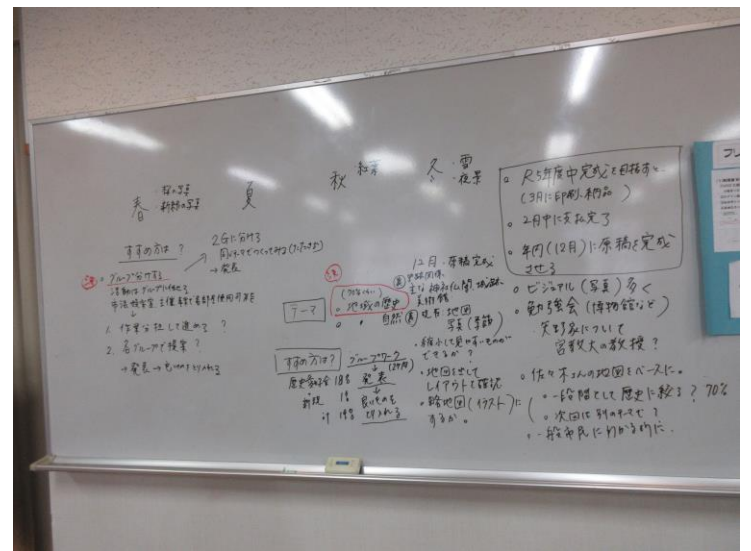 春
・桜の写真
・新緑の写真
夏
秋
・紅葉
冬
・雪
・夜景
すすめ方は?
決
・グループ分けする
活動はグループに任せる
1. 作業分担して進める?
2. 各グループで提案?
→ 発表 →
2Gに分ける
→ 発表
テーマ
決
・地域の歴史
・自然
すすめ方は?
グループワーク
↓
発表
↓
良いものを
歴史
18名
新規 1名
計 19名
12月・原稿完成
主な神社仏閣
美術館
現在 地図
写真(季節)
・縮小して見やすいものが
できるか?
・地図を出して
レイアウトで確認
・略地図(イラスト)に
するか。
・R5年度中完成を目指すと、
(3月に印刷、納品)
・2月中に支払完了
・年内(12月)に原稿を完成
させる
・ビジュアル(写真)多く
・勉強会(博物館など)
について
宮教大の教授?
・佐々木さんの地図をベースに。
・一段階として歴史に絞る? 70%
・次回は別のテーマで?
・一般市民にわかる的に。